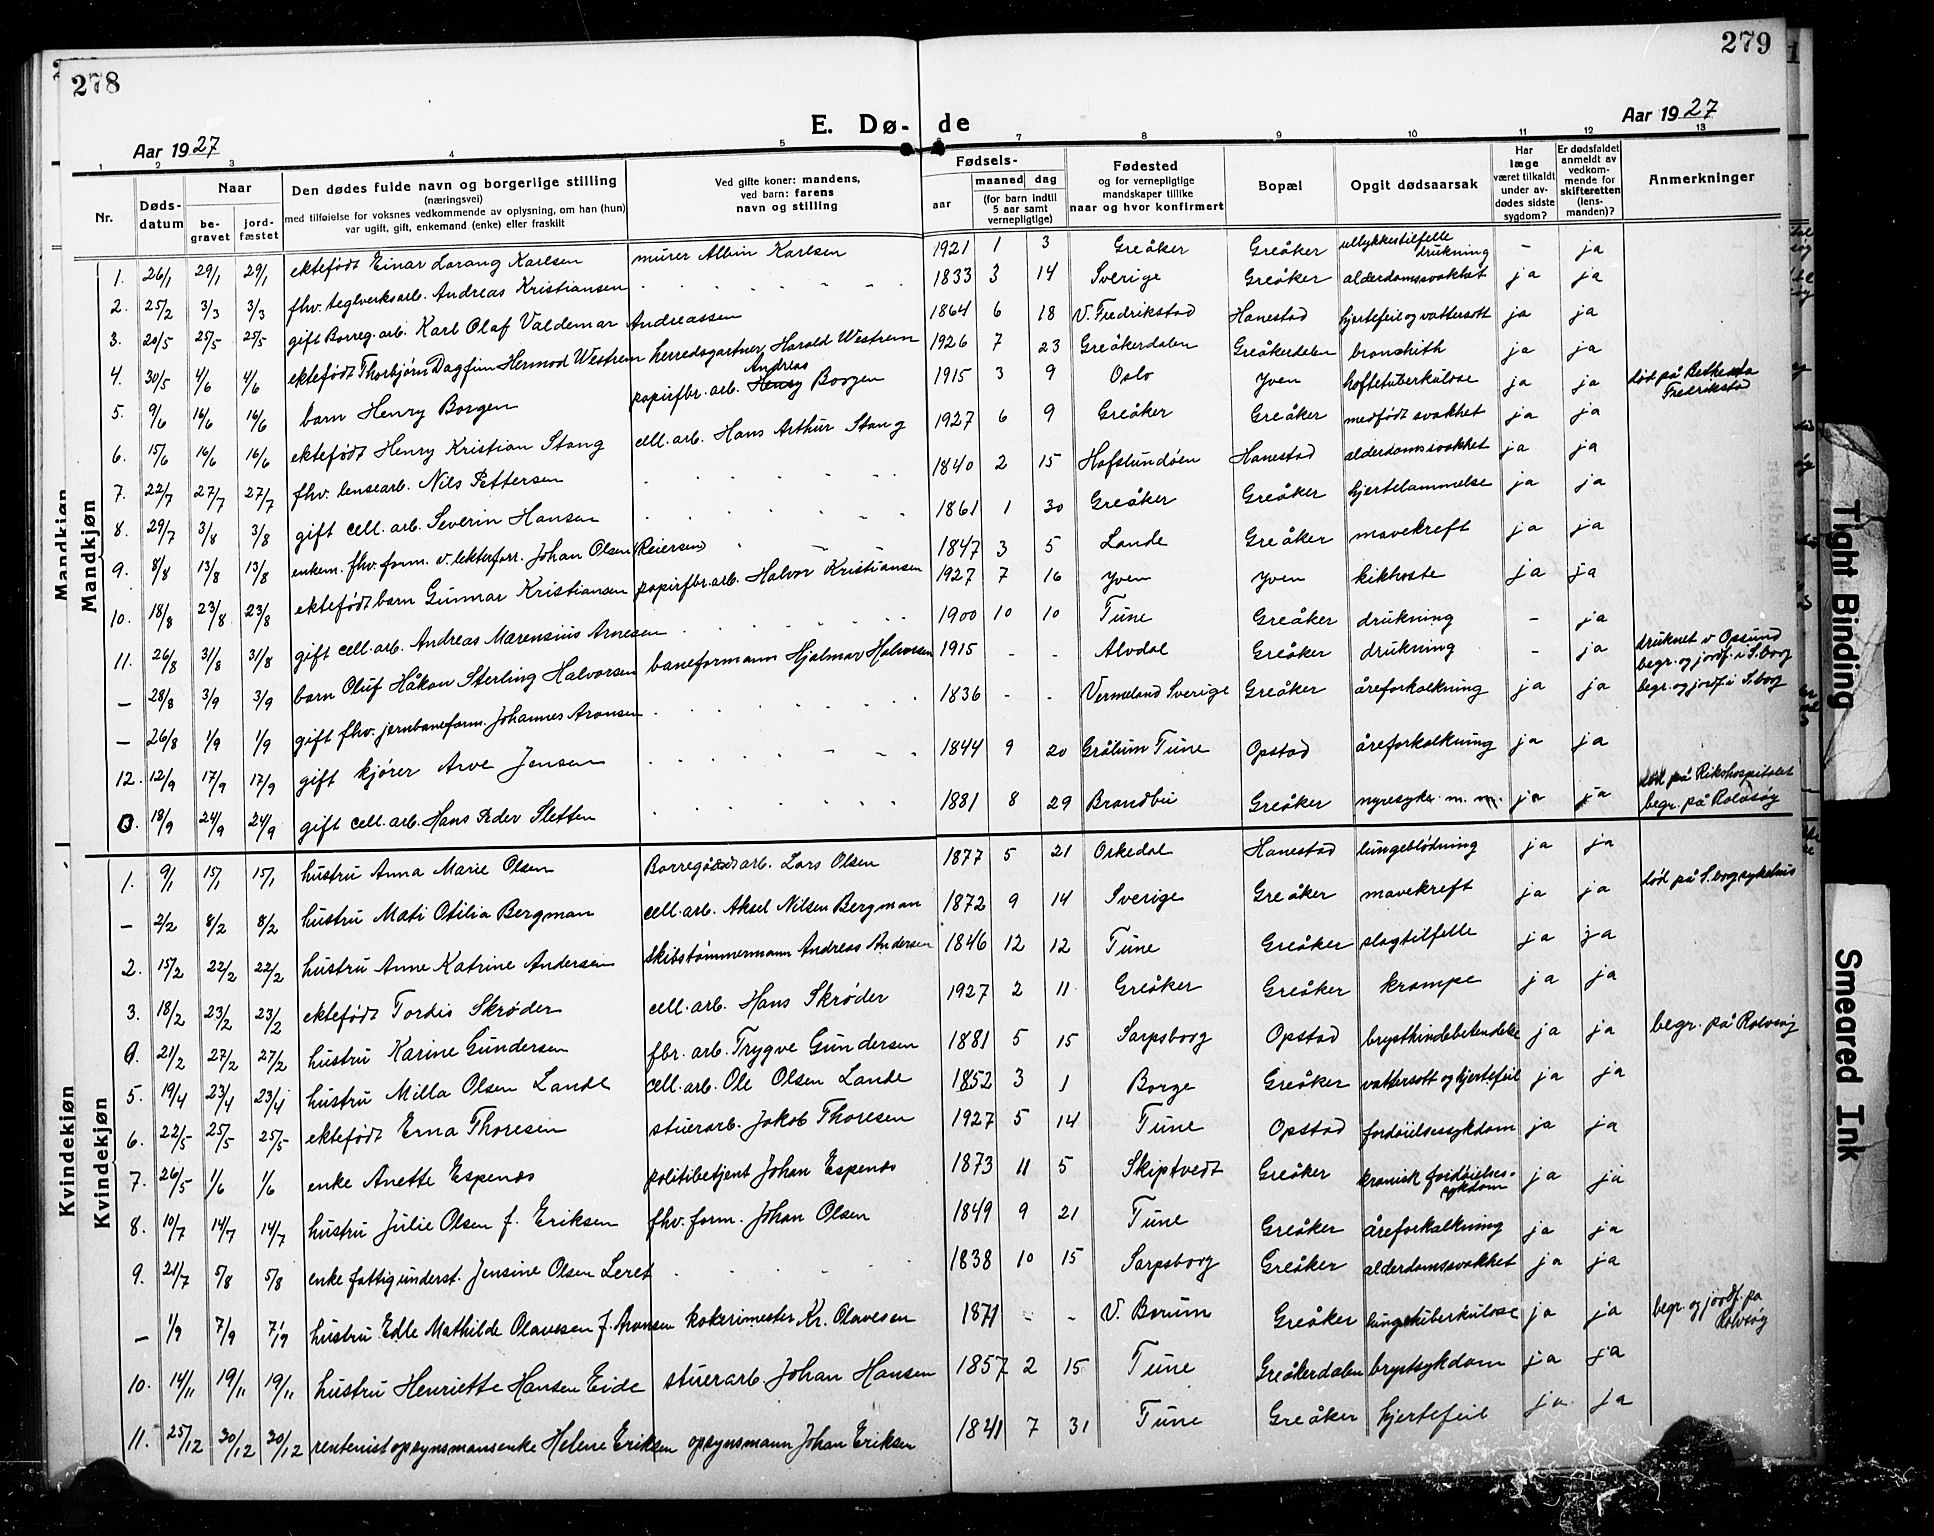 278
279
E. Dø-de
Aar 1927
Aar 1927
1 2 3 4 5 6 7 8 9 10 11 12 13
Nr.
Døds-datum
Naar
be-gravet
jord-fæstet
Den dødes fulde navn og borgerlige stilling
(næringsvei)
med tilføielse for voksnes vedkommende av oplysning, om han (hun)
var ugift, gift, enkemand (enke) eller fraskilt
Ved gifte koner: mandens,
ved barn: farens
navn og stilling
Fødsels-
aar
maaned dag
(for barn indtil
5 aar samt
vernepligtige)
Fødested
og for vernepligtige
mandskaper tillike
naar og hvor konfirmert
Bopæl
Opgit dødsaarsak
Har
læge
været tilkaldt
under av-
dødes sidste
sygdom?
Er dødsfaldet
anmeldt av
vedkom-
mende for
skifteretten
(lens-
manden)?
Anmerkninger
Mandkjøn
Mandkjøn
1. 26/1 29/1 29/1 ektefødt Einar Lorang Karlsen murer Albin Karlsen 1921 1 3 Greåker Greåker ullykkestilfelle drukning - ja
2. 25/2 3/3 3/3 fhv. teglverksarb. Andreas Kristiansen 1833 3 14 Sverige Greåker alderdomssvakhet ja ja
3. 20/5 25/5 25/5 gift Borreg. arb. Karl Olaf Valdemar Andreassen 1864 6 18 V. Fredrikstad Hanestad hjertefeil og vattersott ja ja
4. 30/5 4/6 4/6 ektefødt Thorbjørn Dagfinn Hermod Westrem herredsgartner Harald Westrem 1926 7 23 Greåkerdalen Greåkerdalen bronchith ja ja
5. 9/6 16/6 16/6 barn Henry Borgen papirfbr. arb. Henry Andreas Borgen 1915 3 9 Oslo Yven hoftetuberkulose ja ja død på Bethesda Fredrikstad
6. 15/6 16/6 16/6 ektefødt Henry Kristian Stang cell. arb. Hans Arthur Stang 1927 6 9 Greåker Greåker medfødt svakhet ja ja
7. 22/7 27/7 27/7 fhv. lensearb. Nils Pettersen 1840 2 15 Hafslundsøen Hanestad alderdomssvakhet ja ja
8. 29/7 3/8 3/8 gift cell. arb. Severin Hansen 1861 1 30 Greåker Greåker hjertelammelse ja ja
9. 8/8 13/8 13/8 enkem. fhv. form. v. lekterforr. Johan Olsen (Reiersen) 1847 3 5 Lande Greåker mavekreft ja ja
10. 18/8 23/8 23/8 ektefødt barn Gunnar Kristiansen papirfbr. arb. Halvor Kristiansen 1927 7 16 Yven Yven kikhoste ja ja
11. 26/8 31/8 31/8 gift cell. arb. Andreas Marensius Arnesen 1900 10 10 Tune Greåker drukning - ja
- 28/8 3/9 3/9 barn Oluf Håkon Sterling Halvorsen baneformann Hjalmar Halvorsen 1915 - - Alvdal Greåker drukning - ja druknet v Opsund begr. og jordf. i S.borg
- 26/8 1/9 1/9 gift fhv. jernbaneform. Johannes Aronsen 1836 - - Vermeland Sverige Greåker åreforkalkning ja ja begr. og jordf. i S.borg
12. 12/9 17/9 17/9 gift kjører Arve Jensen 1844 9 20 Grålum Tune Opstad åreforkalkning ja ja
0. 18/9 24/9 24/9 gift cell. arb. Hans Peder Sletten 1881 8 29 Brandbu Greåker nyresyke m.m. ja ja død på Rikshospitalet begr. på Rolvsøy
Kvindekjøn
Kvindekjøn
1. 9/1 15/1 15/1 hustru Anna Marie Olsen Borregårds arb. Lars Olsen 1877 5 21 Orkedal Hanestad lungeblødning ja ja
- 2/2 8/2 8/2 hustru Mati Otilia Bergman cell. arb. Aksel Nilsen Bergman 1872 9 14 Sverige Greåker mavekreft ja ja død på S.borg sykehus
2. 15/2 22/2 22/2 hustru Anne Katrine Andersen skibstømmermann Andreas Andersen 1846 12 12 Tune Greåker slagtilfelle ja ja
3. 18/2 23/2 23/2 ektefødt Tordis Skrøder cell. arb. Hans Skrøder 1927 2 11 Greåker Greåker krampe ja ja
0. 21/2 27/2 27/2 hustru Karine Gundersen fbr. arb. Trygve Gundersen 1881 5 15 Sarpsborg Opstad brysthindebetendelse ja ja begr. på Rolvsøy
5. 19/4 23/4 23/4 hustru Milla Olsen Lande cell. arb. Ole Olsen Lande 1852 3 1 Borge Greåker vattersott og hjertefeil ja ja
6. 22/5 25/5 25/5 ektefødt Erna Thoresen stuerarb. Jakob Thoresen 1927 5 14 Tune Opstad fordøielsessykdom ja ja
7. 26/5 1/6 1/6 enke Anette Espenes politibetjent Johan Espenes 1873 11 5 Skiptvedt Greåker kronisk fordøielses-sykdom ja ja
8. 10/7 14/7 14/7 hustru Julie Olsen f. Eriksen fhv. form. Johan Olsen 1849 9 21 Tune Greåker åreforkalkning ja ja
9. 21/7 5/8 5/8 enke fattigunderst. Jensine Olsen Leret 1838 10 15 Sarpsborg Greåker alderdomssvakhet ja ja
- 1/9 7/9 7/9 hustru Edle Mathilde Olavesen f. Aronsen kokerimester Kr. Olavesen 1871 - - V. Bærum Greåker lungetuberkulose ja ja begr. og jordf. på Rolvsøy
10. 14/11 19/11 19/11 hustru Henriette Hansen Eide stuerarb. Johan Hansen 1857 2 15 Tune Greåkerdalen brystsykdom ja ja
11. 25/12 30/12 30/12 rentenist opsynsmansenke Helene Eriksen opsynsmann Johan Eriksen 1841 7 31 Tune Greåker hjertefeil ja ja
Tight Binding
Smeared Ink